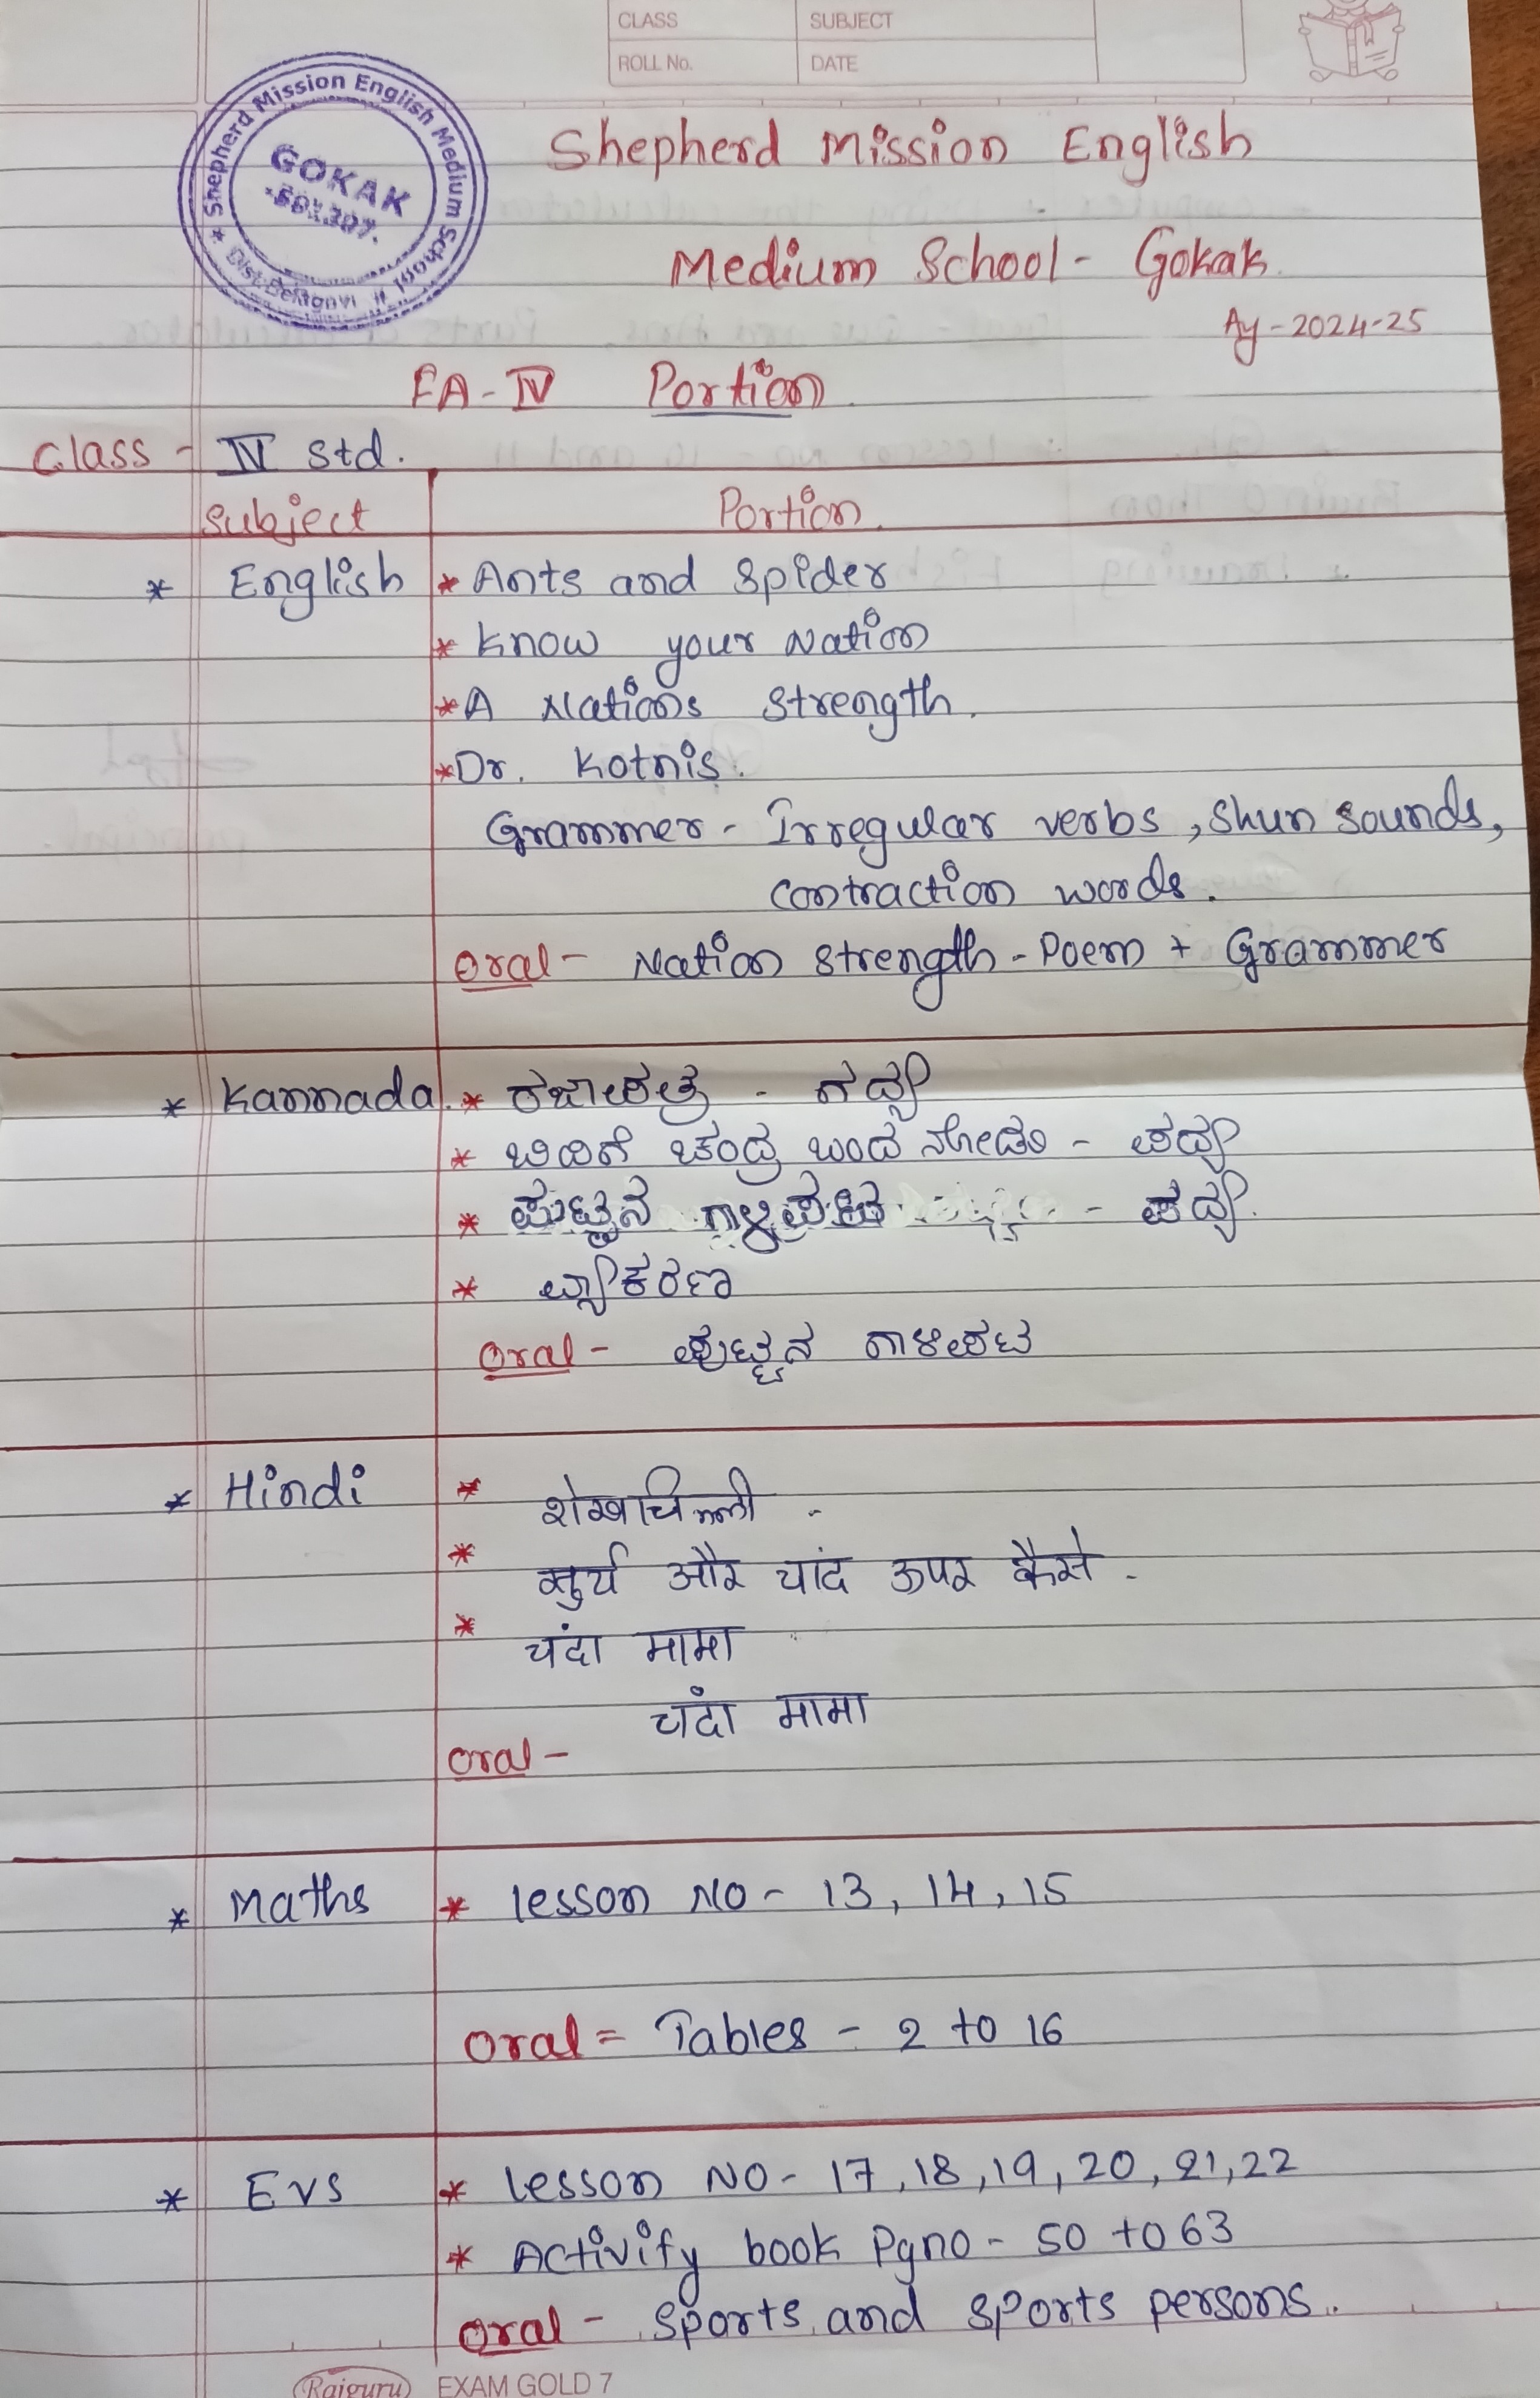 CLASS SUBJECT
ROLL No. DATE
Shepherd Mission English Medium School
Dist: Belagavi
GOKAK
Shepherd Mission English
Medium School - Gokak
Ay - 2024-25
FA - IV Portion
Class - IV Std.
Subject Portion
* English * Ants and Spider
* Know your Nation
* A Nations Strength.
* Dr. Kotnis.
Grammer - Irregular verbs, Shun Sounds,
Contraction words.
Oral - Nation Strength - Poem + Grammer
* Kannada. * ರಜಾಪತ್ರ - ಗದ್ಯ
* ಬಿದಿಗೆ ಚಂದ್ರ ಬಂದ ನೋಡು - ಪದ್ಯ
* ಪುಟ್ಟನ ಗಾಳಿಪಟ - ಪದ್ಯ
* ವ್ಯಾಕರಣ
Oral - ಪುಟ್ಟನ ಗಾಳಿಪಟ
* Hindi * शेखचिल्ली -
* सुर्य और चांद ऊपर कैसे -
* चंदा मामा
चदां मामा
Oral -
* Maths * lesson NO - 13, 14, 15
Oral = Tables - 2 to 16
* Evs * lesson NO - 17, 18, 19, 20, 21, 22
* Activity book Pgno - 50 to 63
Oral - Sports and Sports persons.
Rajguru EXAM GOLD 7